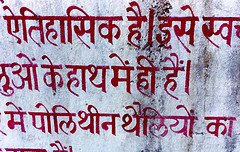 ऐतिहासिक है। इसे स्व
ुओं के हाथ में ही हैं।
में पोलिथीन थैलियों का
हैं।